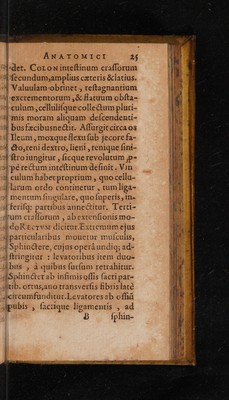 ANATOMICI 25
det. COLON intestinum crassorum
secundum, amplius cæteris & latius.
Valuulam obtinet, restagnantium
excrementorum, & flatuum obsta-
culum, cellulisque collectum pluri-
mis moram aliquam descendenti-
bus fæcibus nectit. Assurgit circa os
Ileum, moxque flexu sub jecore fa-
cto, reni dextro, lieni, renique sini-
stro iungitur, sicque revolutum ꝓ-
pè rectum intestinum desinit. Vin
culum habet proprium, quo cellu-
larum ordo continetur, tum liga-
mentum singulare, quo superis, in-
ferisq; partibus annectitur. Terti-
um crassorum, ab extensionis mo-
do RECTVM dicitur. Extremum ejus
particularibus mouetur musculis,
Sphinctere, cujus operâ undiq; ad-
stringitur: levatoribus item duo-
bus, à quibus sursum retrahitur.
Sphincter ab infimis ossis sacri par-
tib. ortus, ano transversis fibris latè
circumfunditur. Levatores ab ossiū
pubis, sacrique ligamentis, ad
B sphin-